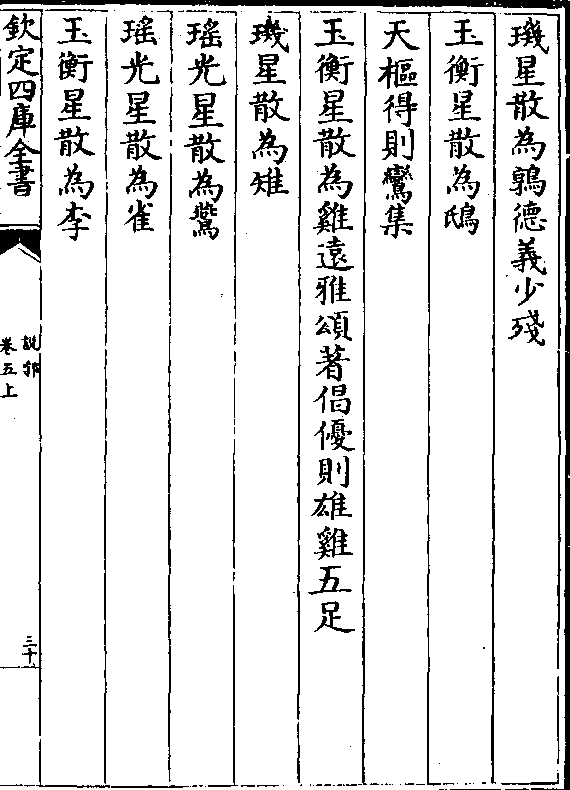 璣星散為鶉德義少殘
玉衡星散為鴟
天樞得則鸞集
玉衡星散為雞遠雅頌著倡優則雄雞五足
璣星散為雉
瑤光星散為鷔
瑤光星散為雀
玉衡星散為李
欽定四庫全書
說郛
卷五上
三十